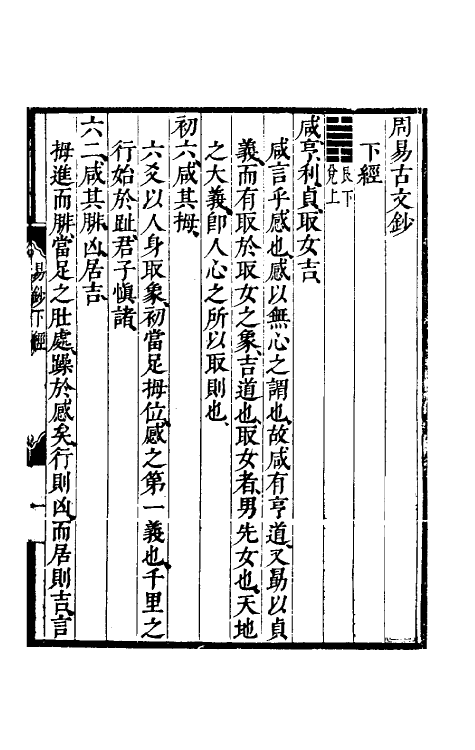 周易古文鈔
下經
艮下
兌上
咸亨利貞取女吉
咸言乎感也感以無心之謂也故咸有亨道又勗以貞
義而有取於取女之象吉道也取女者男先女也天地
之大義卽人心之所以取則也
初六咸其拇
六爻以人身取象初當足拇位感之第一義也千里之
行始於趾君子愼諸
六二咸其腓凶居吉
拇進而腓當足之肚處躁於感矣行則凶而居則吉言
易鈔下經
一